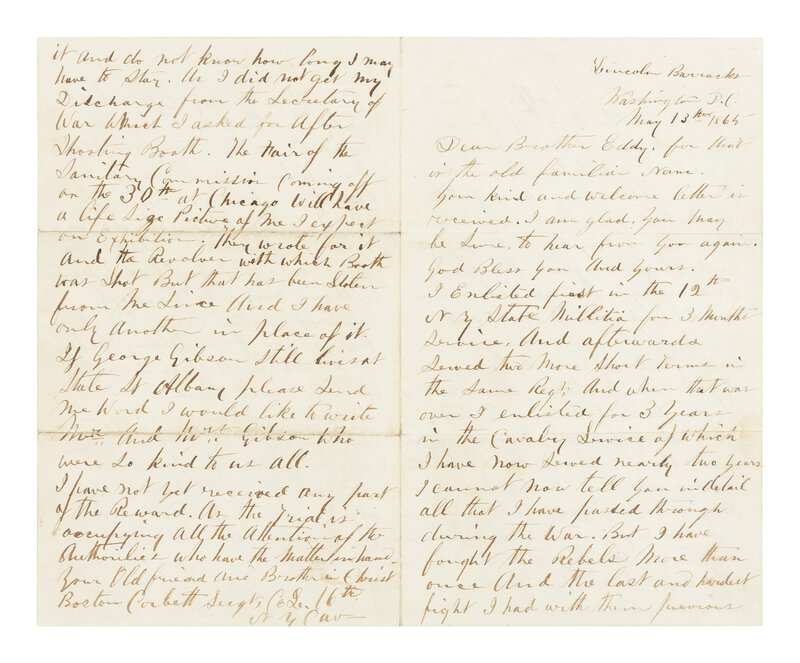 it and do not know how long I may
have to Stay. As I did not get my
Discharge from the Secretary of
War Which I asked for After
Shooting Booth. The Fair of the
Sanitary Commission Coming off
on the 30th at Chicago Will have
a life Size Picture of Me I expect
on Exhibition. They wrote for it
And the Revolver with which Booth
was Shot But that has been Stolen
from Me Since And I have
only Another in place of it.
If George Gibson Still lives at
State St Albany please Send
Me Word I would like to write
Mr. And Mrs. Gibson Who
were So kind to us all.
I have not yet received any part
of the Reward. As the Trial is
occupying All the Attention of the
Authorities who have the Matter in hand.
Your Old friend and Brother in Christ
Boston Corbett Sergt, Co L. 16th.
N. Y Cav
Lincoln Barracks
Washington D.C.
May 13th 1865
Dear Brother Eddy. for that
is the old familiar Name.
Your kind and welcome letter is
received. I am glad, You May
be Sure, to hear from You again.
God Bless You And Yours.
I Enlisted first in the 12th
N. Y State Militia for 3 Months
Service, And afterwards
Served two More Short Terms in
the Same Regt, And when that was
over I enlisted for 3 Years
in the Cavalry Service of Which
I have now Served nearly two years
I cannot now tell You in detail
all that I have passed through
during the War. But I have
fought the Rebels More than
once And the last and hardest
fight I had with them previous